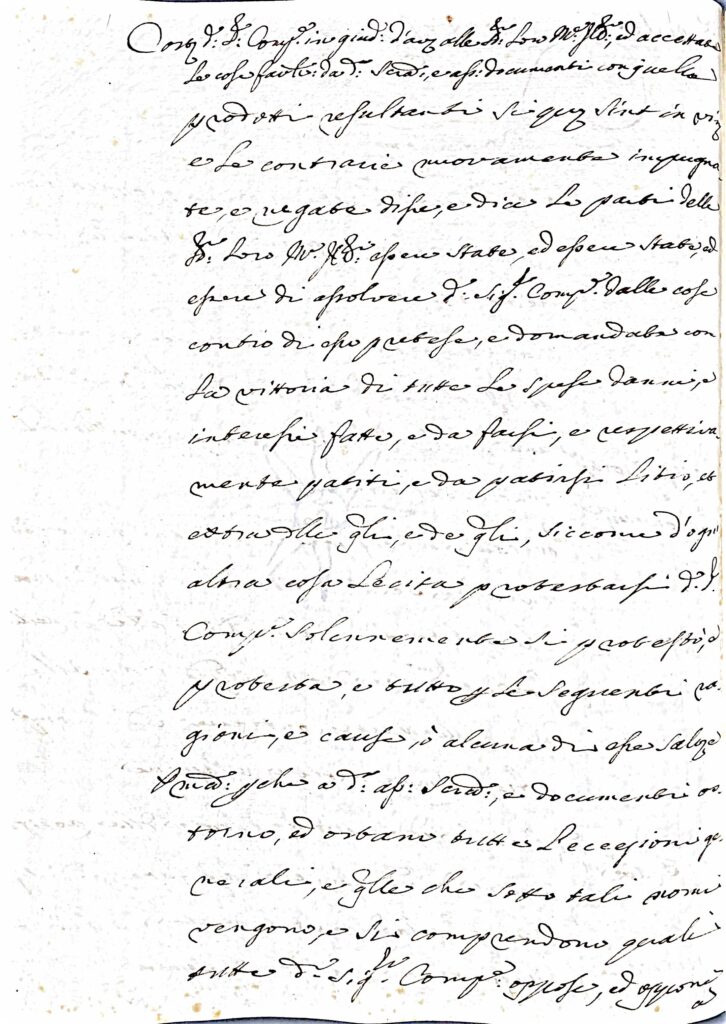 Cors: d.º S.r Comp.e in giud.º d'av.i alle S.rie Loro M.to Ill.ri, ed accettate
le cose favli: da d.ª Scrã:, e asj: documenti con quella
prodotti resultanti si quæ sint in viz
e le contrarie nuovamente inpugna-
te, e negate disse, e dice le parti delle
S.rie Loro M.to Ill.ri essere state, ed essere state, ed
essere di assolvere d.º Sig.r Comp.e dalle cose
contro di esso pretese, e domandate con
la vittoria di tutte le spese danni, e
interessi fatte, e da farsi, e respettiva-
mente patiti, e da patirsi Litis, et
extra delle q̃li, e de q̃li, siccome d'ogni
altra cosa Lecita protestarsi d.º S.r
Comp.e solennemente si protestò, e
protesta, e tutto p le seguenti ra-
gioni, e cause, ò alcuna di esse salve
P.ma: pche a d.ª asj: Scrã:, e documenti os-
torno, ed ostano tutte l'eccezioni ge-
nerali, e q̃lle che sotto tali nomi
vengono, e si comprendono quali
tutte d.º Sig.r Comp.e oppose, ed oppone